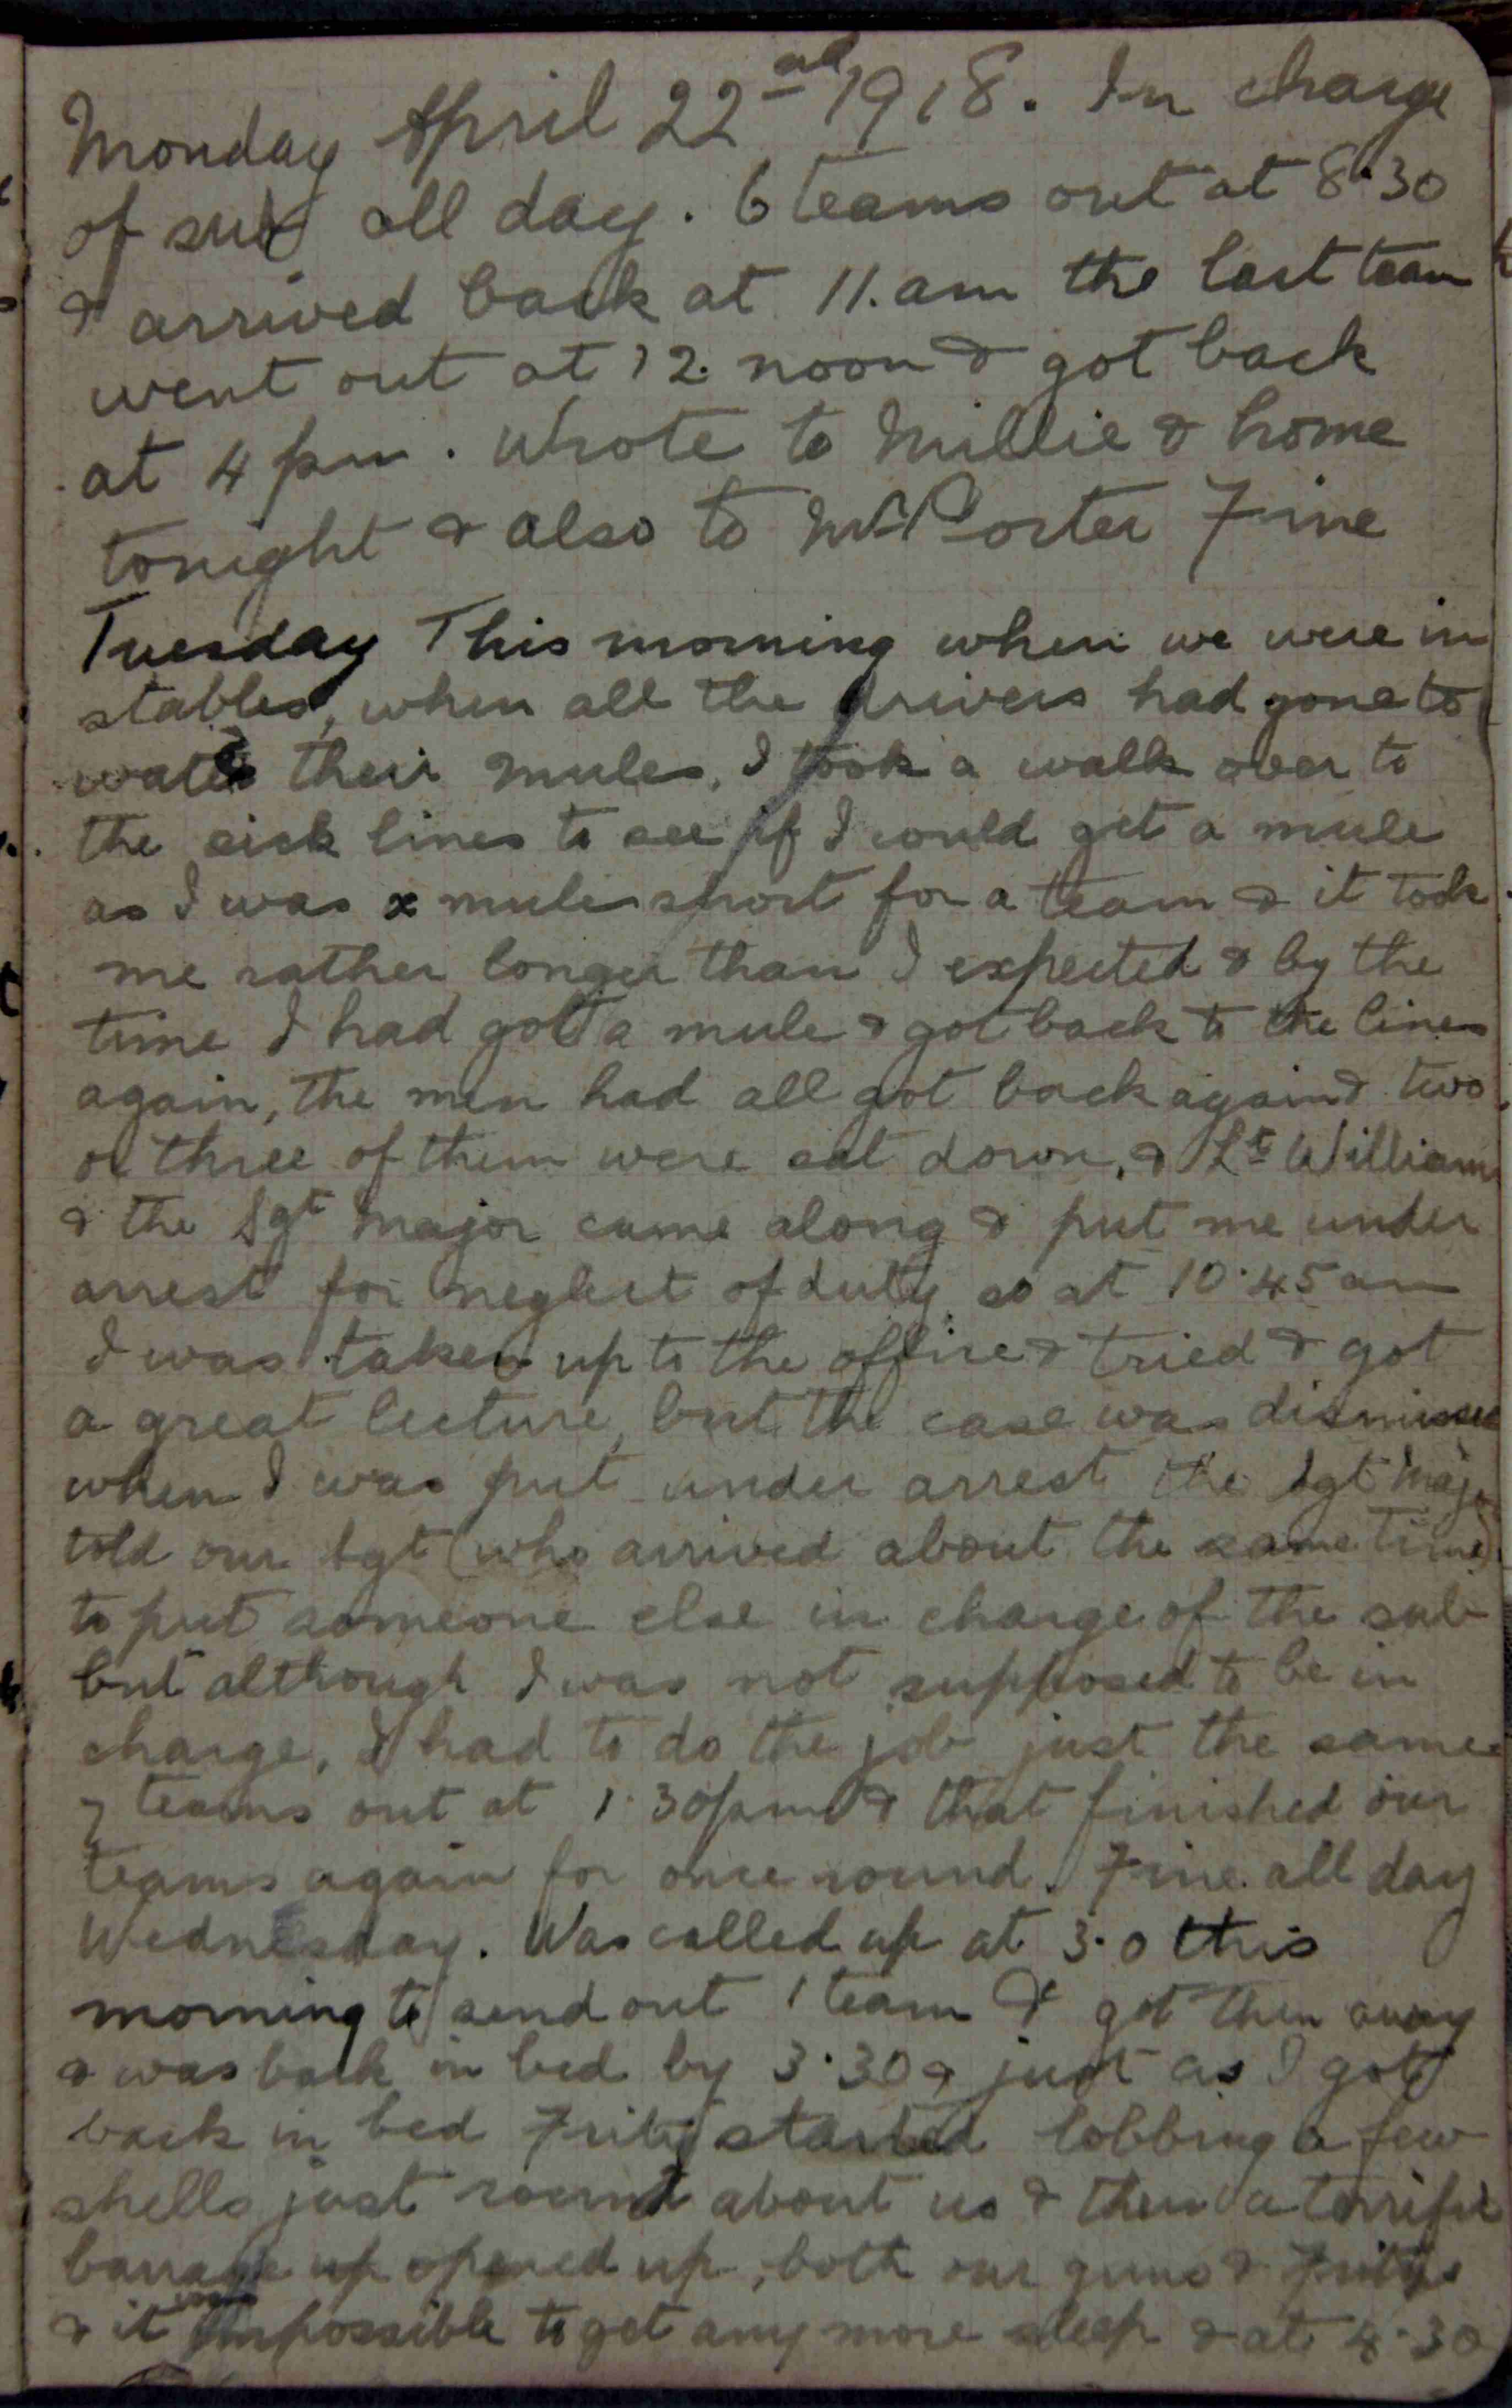 Monday April 22nd 1918. In charge
of sub all day. 6 teams out at 8.30
& arrived back at 11.am the last team
went out at 12. noon & got back
at 4 pm. Wrote to Millie & home
tonight & also to Mr Porter Fine
Tuesday This morning when we were in
stables, when all the drivers had gone to
water their mules, I took a walk over to
the sick lines to see if I could get a mule
as I was a mule short for a team & it took
me rather longer than I expected & by the
time I had got a mule & got back to the lines
again, the men had all got back again & two
or three of them were sat down, & Lt Williams
& the Sgt Major came along & put me under
arrest for neglect of duty so at 10.45 am
I was taken up to the office & tried & got
a great lecture, but the case was dismissed
when I was put under arrest the Sgt Major
told our Sgt (who arrived about the same time)
to put someone else in charge of the sub
but although I was not supposed to be in
charge, I had to do the job just the same
7 teams out at 1.30pm & that finished our
teams again for once round. Fine all day
Wednesday. Was called up at 3.0 this
morning to send out 1 team & got them away
& was back in bed by 3.30 & just as I got
back in bed Fritz started lobbing a few
shells just round about us & then a terrific
barrage up opened up, both our guns & Fritz's
& it was impossible to get any more sleep & at 4.30